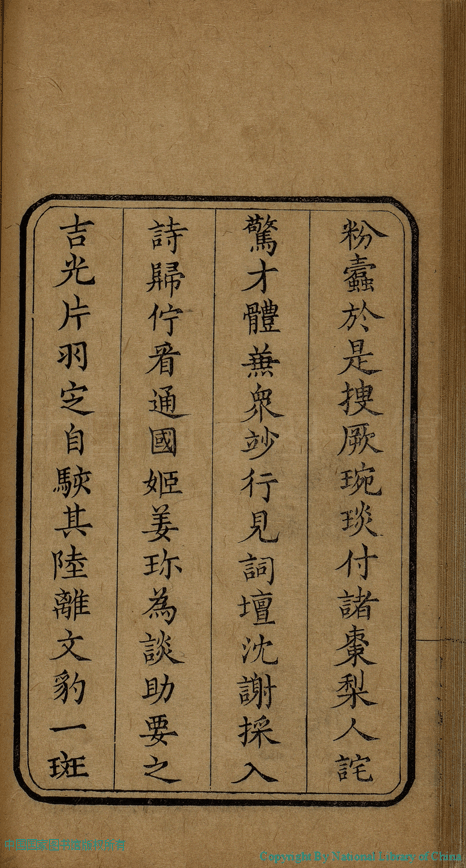 粉蠹於是捜厥琬琰付諸棗梨人詫
驚才體蕪衆竗行見詞壇沈謝採入
詩歸佇看通國姬姜珎為談助要之
吉光片羽定自駛其陸離文豹一斑
Copyright By National Library of China